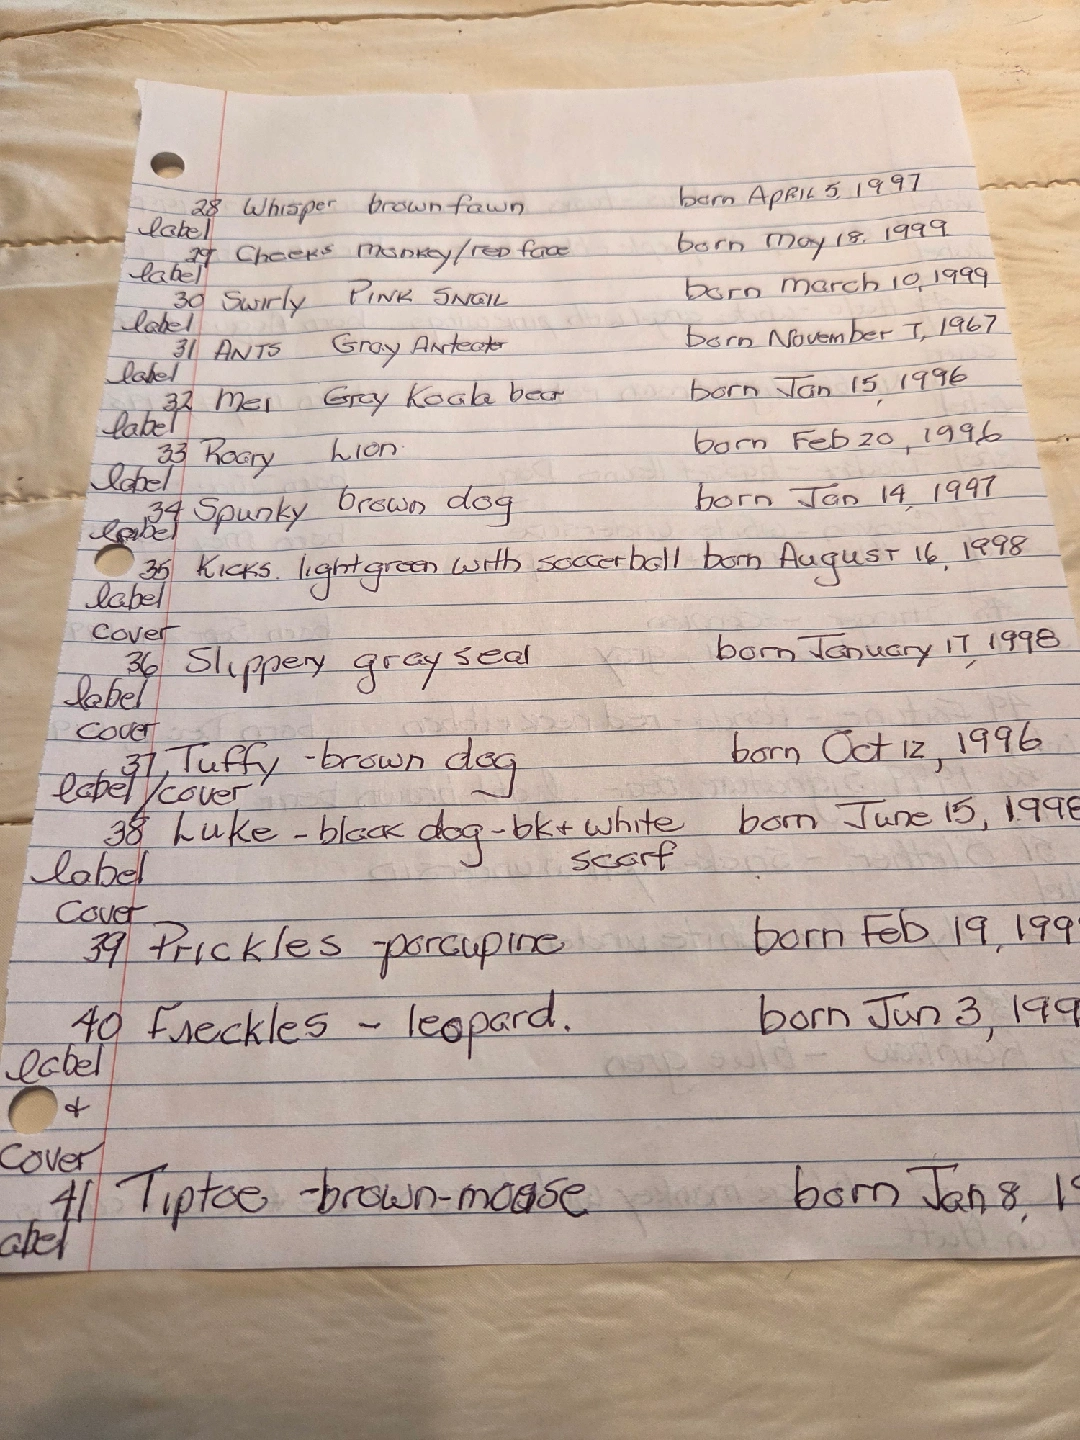 28 Whisper brown fawn born APRIL 5, 1997
label
29 Cheeks monkey/red face born may 18, 1999
label
30 Swirly PINK SNAIL born march 10, 1999
label
31 ANTS Gray Anteater born November 7, 1967
label
32 Mel Gray Koala bear born Jan 15, 1996
label
33 Roary Lion. born Feb 20, 1996
label
34 Spunky brown dog born Jan 14, 1997
label
35 Kicks. light green with soccerball born August 16, 1998
label
cover
36 Slippery gray seal born January 17, 1998
label
cover
37, Tuffy - brown dog born Oct 12, 1996
label/cover
38 Luke - black dog - bk + white born June 15, 1998
label scarf
Cover
39 Prickles - porcupine born Feb 19, 199
40 Freckles - leopard. born Jun 3, 199
label
+
Cover
41 Tiptoe - brown - moose born Jan 8, 19
abel